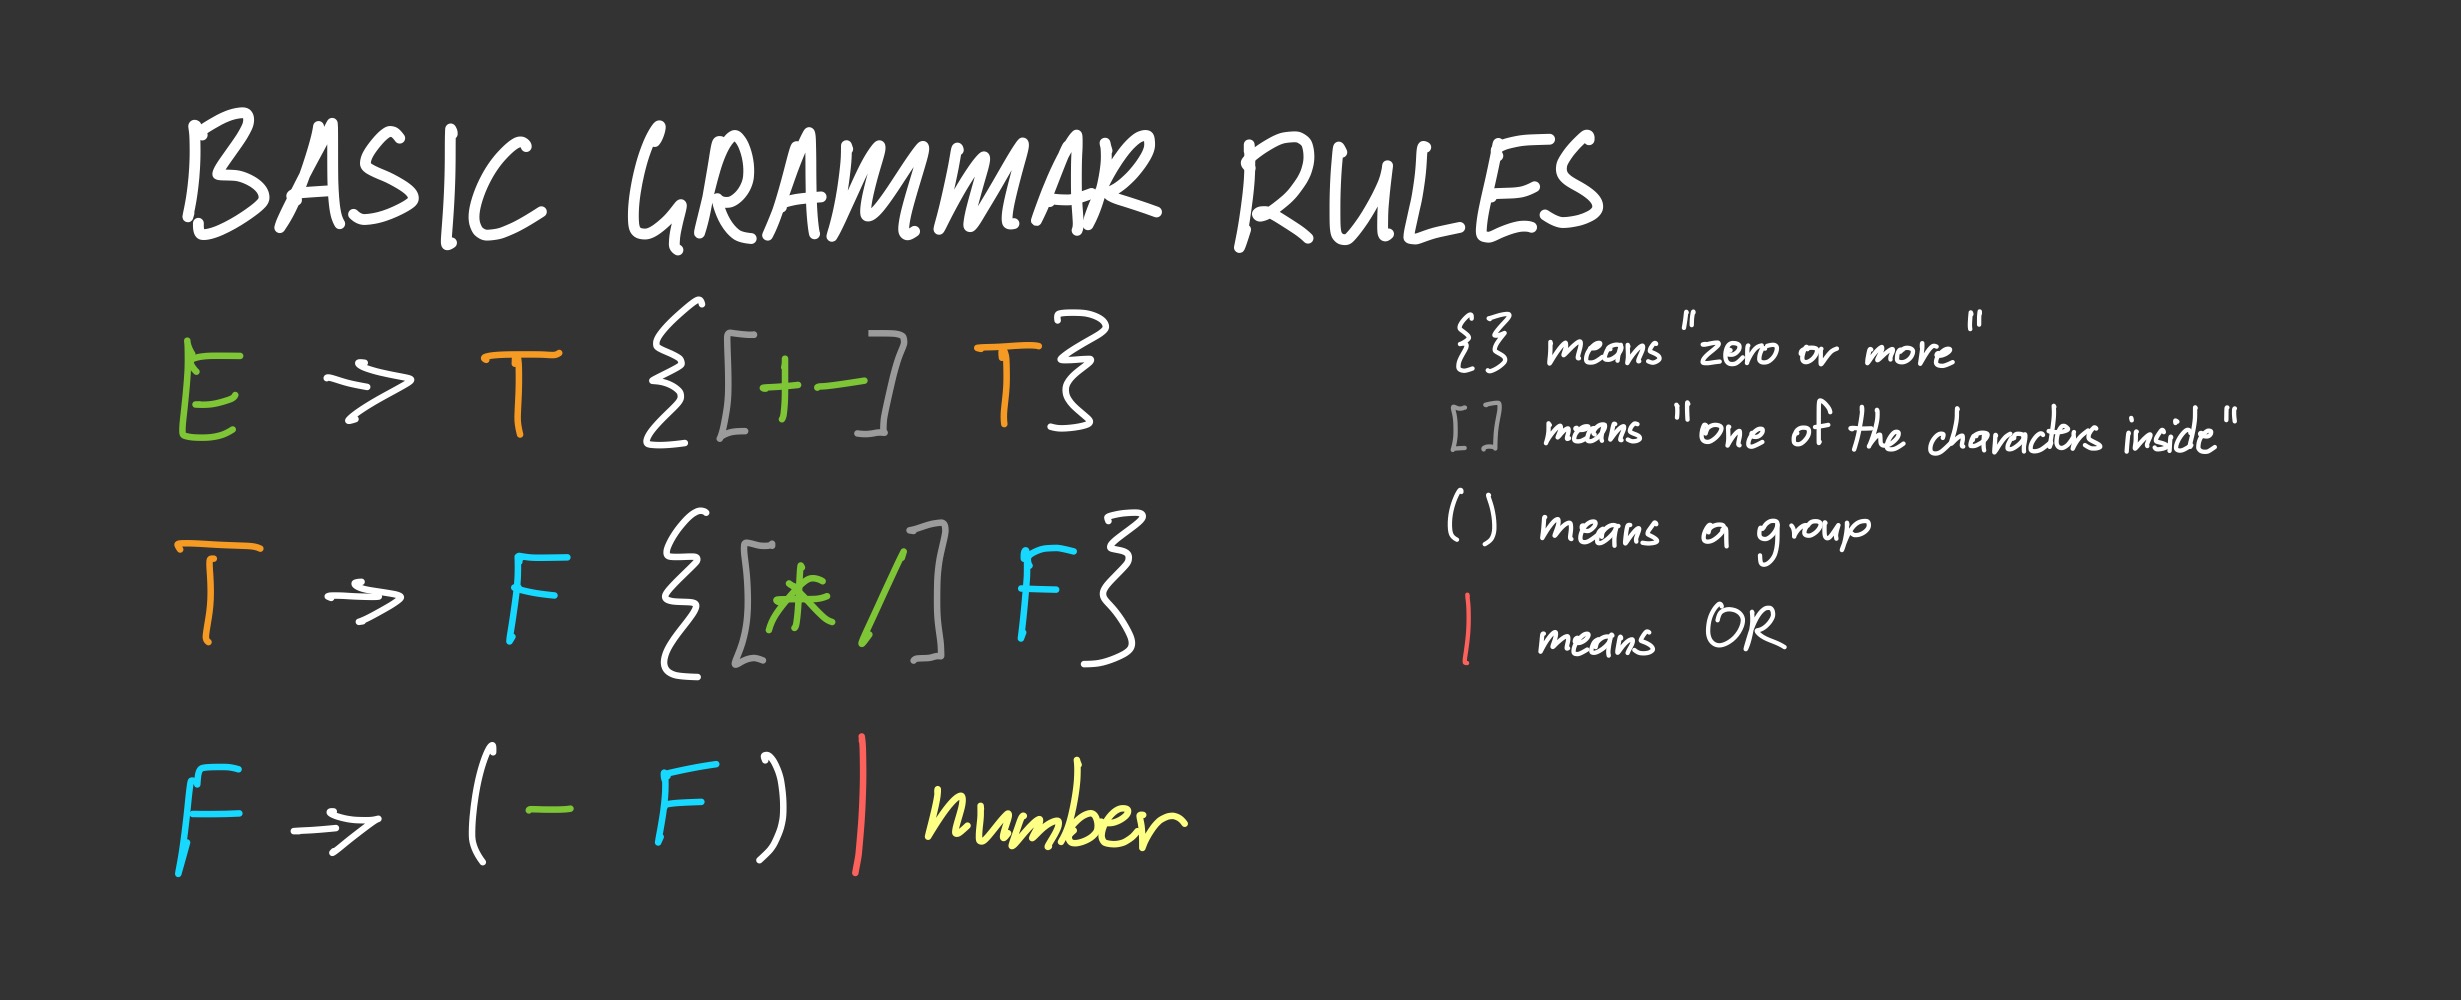 BASIC GRAMMAR RULES
E -> T {[+-] T}
T -> F {[*/] F}
F -> (- F) | number
{} means "zero or more"
[] means "one of the characters inside"
() means a group
| means OR